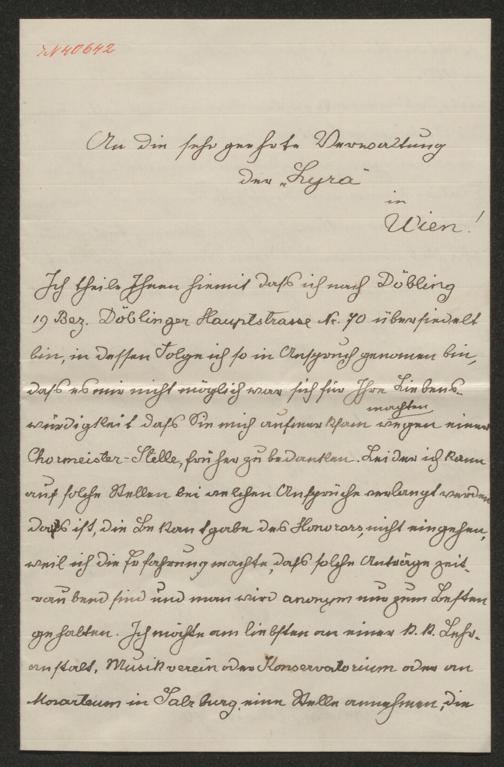 N 40642
An die sehr geehrte Verwaltung
der „Lyra“
in
Wien!
Ich theile Ihnen hiemit daſs ich nach Döbling
19 Bez. Döblinger Hauptstrasse Nr. 70 übersiedelt
bin, in dessen Folge ich so in Anspruch genomen bin,
daſs es mir nicht möglich war sich für Ihre Liebens-
machten
würdigkeit daſs Sie mich aufmerksam wegen einer
Chormeister-Stelle, früher zu bedanken. Leider ich kann
auf solche Stellen bei welchen Ansprüche verlangt werden
daſs ist, die Bekantgabe des Honorars, nicht eingehen,
weil ich die Erfahrung machte, daſs solche Anträge zeit-
raubend sind und man wird anonym nur zum Besten
gehalten. Ich möchte am liebsten an einer k. k. Lehr-
anstalt, Musikverein oder Konservatorium oder an
Mozarteum in Salzburg eine Stelle annehmen, die